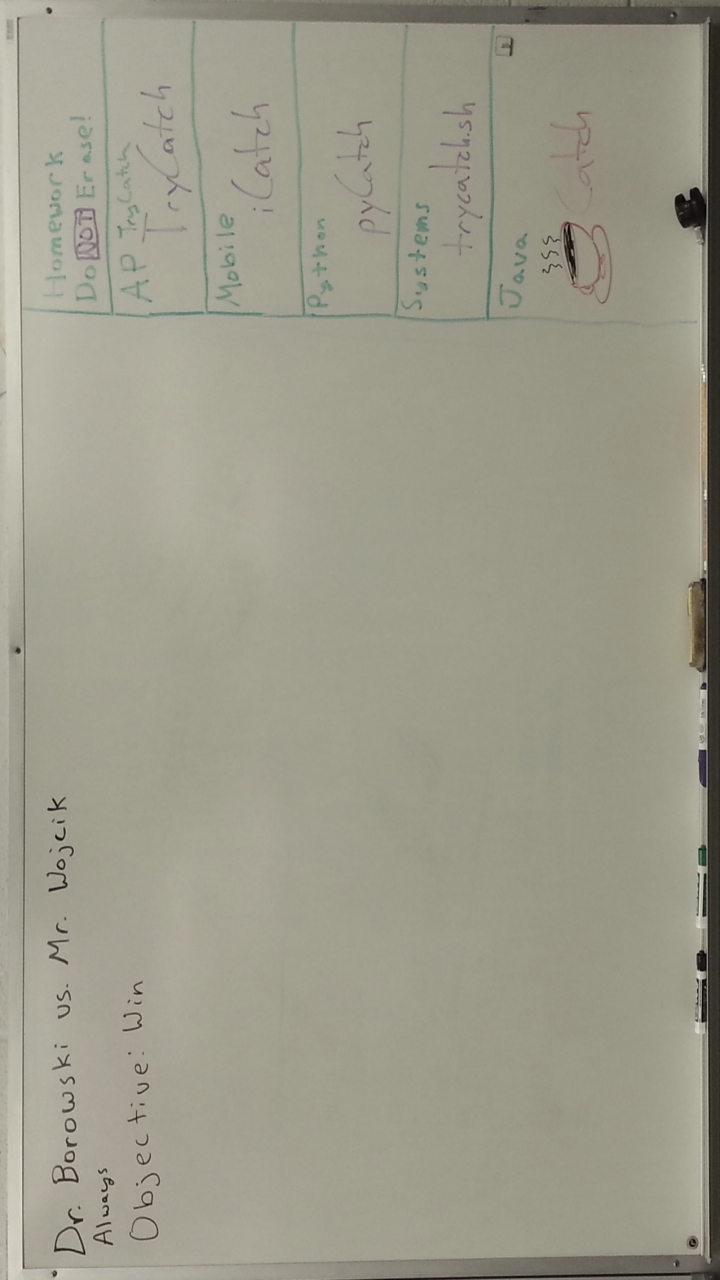 Dr. Borowski vs. Mr. Wojcik
Always
Objective: Win
Homework
Do NOT Erase!
AP TryCatch
TryCatch
Mobile
iCatch
Python
pyCatch
Systems
trycatch.sh
Java
Catch